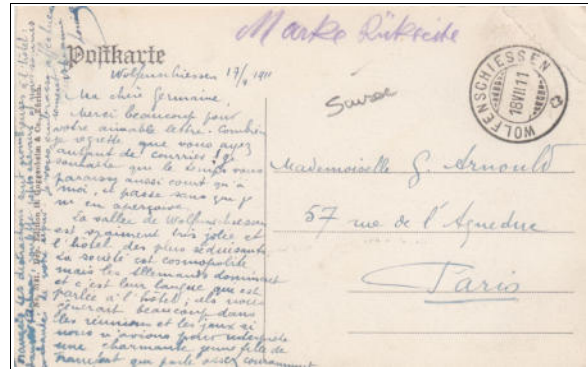 Marke Rückseite
Postkarte
Wolfenschiessen 17/7 1911
Ma chère Germaine,
Merci beaucoup pour
votre aimable lettre. Combien
je regrette que vous ayez
autant de courrier! Je
souhaite que le temps vous
paraisse aussi court qu'à
moi, il passe sans que je
m'en aperçoive.
La vallée de Wolfenschiessen
est vraiment très jolie et
l'hôtel des plus séduisants
La société est cosmopolite
mais les Allemands dominent
et c'est leur langue que est
parlée à l'hôtel; cela nous
gênerait beaucoup dans
les réunions et les jeux si
nous n'avions pour interprète
une charmante jeune fille de
Francfort qui parle assez couramment
français. Les distractions sont nombreuses à l'hôtel:
WOLFENSCHIESSEN
18 VII 11
Suisse
Mademoiselle G. Arnould
57 rue de l'Aqueduc
Paris